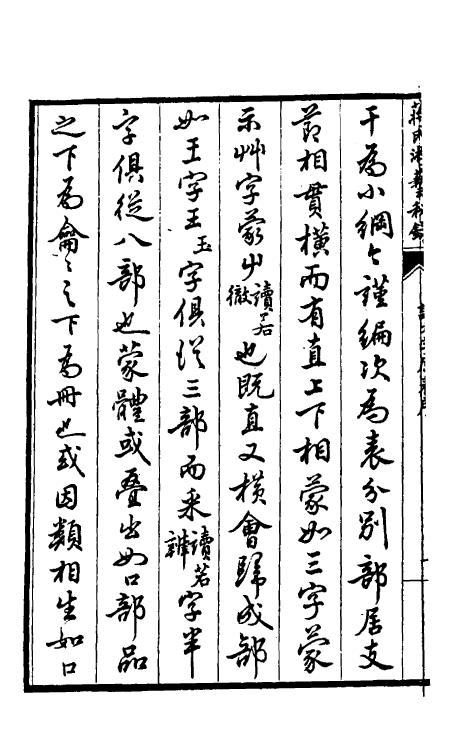 干為小綱今謹編次為表分別部居支
節相貫橫而有直上下相蒙如三字蒙
示艸字蒙屮讀若徹也既直又橫會歸成部
如王字王玉字俱從三部而釆讀若辨字半
字俱從八部也蒙體或疊出如口部品
之下為龠龠之下為冊也或因類相生如口